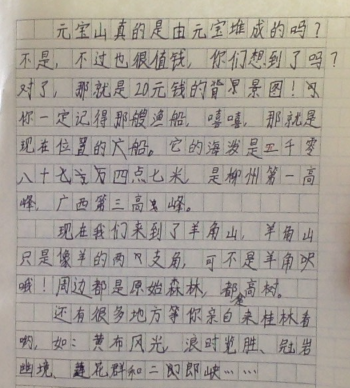 元宝山真的是由元宝堆成的吗？
不是，不过也很值钱，你们想到了吗？
对了，那就是20元钱的背景图！
你一定记得那艘渔船，嘻嘻，那就是
现在位置的大船。它的海拨是二千零
八十七点四点七米，是柳州第一高
峰，广西第三高峰。
现在我们来到了羊角山，羊角山
只是像羊的两只支角，可不是羊角哦
哦！周边都是原始森林，都是高树。
还有很多地方等你亲自来桂林看
哟，如：黄布风光，浪时览胜、冠岩
幽境、花群和二郎即峡……